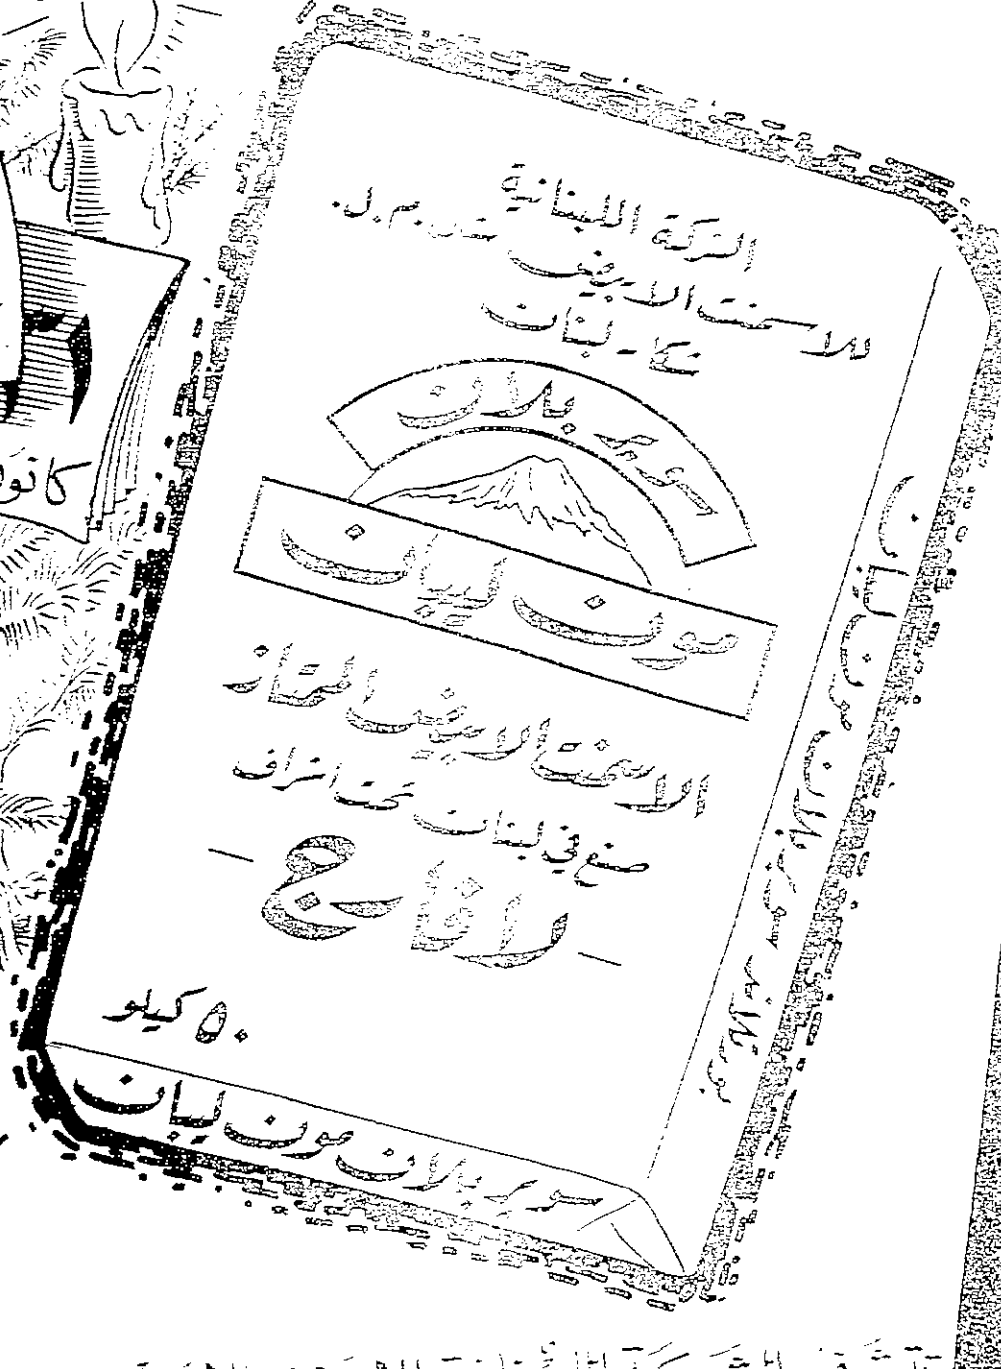 الشركة اللبنانية
للاسمنت الابيض ش.م.ل.
شكا - لبنان
سوبر بلان
مون ليبان
الاسمنت الابيض الممتاز
صنع في لبنان تحت اشراف
— لافارج —
٥٠ كيلو
سوبر بلان مون ليبان
سوبر بلان مون ليبان